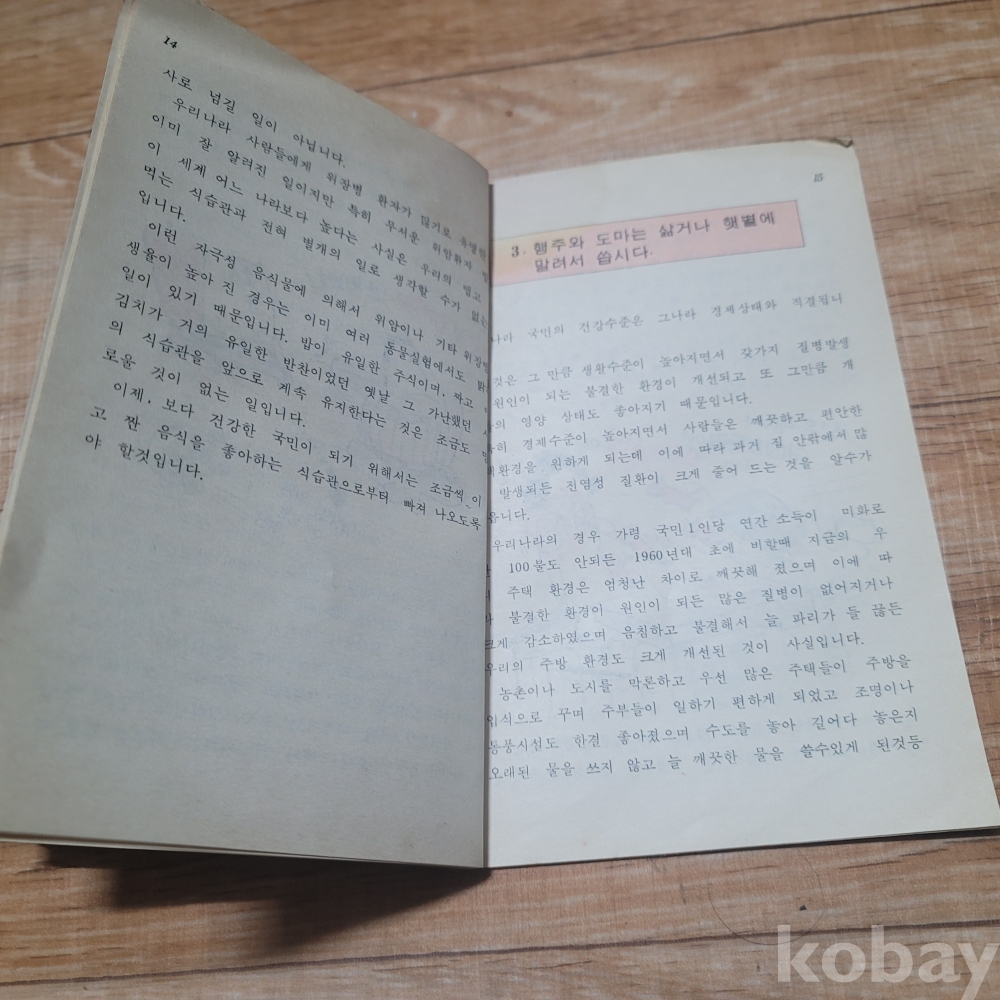 14
사로 넘길 일이 아닙니다.
우리나라 사람들에게 위장병 환자가 많기로 유명한
이미 잘 알려진 일이지만 특히 무서운 위암환자
이 세계 어느 나라보다 높다는 사실은 우리의 맵고
먹는 식습관과 전혀 별개의 일로 생각할 수가 없는
입니다.
이런 자극성 음식물에 의해서 위암이나 기타 위장병
생율이 높아 진 경우는 이미 여러 동물실험에서도
일이 있기 때문입니다. 밥이 유일한 주식이며, 짜고
김치가 거의 유일한 반찬이었던 옛날 그 가난했던
의 식습관을 앞으로 계속 유지한다는 것은 조금도
로울 것이 없는 일입니다.
이제, 보다 건강한 국민이 되기 위해서는 조금씩 이
고 짠 음식을 좋아하는 식습관으로부터 빠져 나오도록
야 할것입니다.
15
3. 행주와 도마는 삶거나 햇볕에
말려서 씁시다.
나라 국민의 건강수준은 그나라 경제상태와 직결됩니
것은 그 만큼 생활수준이 높아지면서 갖가지 질병발생
원인이 되는 불결한 환경이 개선되고 또 그만큼 개
의 영양 상태도 좋아지기 때문입니다.
특히 경제수준이 높아지면서 사람들은 깨끗하고 편안한
환경을 원하게 되는데 이에 따라 과거 집 안밖에서 많
발생되든 전염성 질환이 크게 줄어 드는 것을 알수가
읍니다.
우리나라의 경우 가령 국민 1인당 연간 소득이 미화로
100불도 안되든 1960년대 초에 비할때 지금의 우
주택 환경은 엄청난 차이로 깨끗해 졌으며 이에 따
불결한 환경이 원인이 되든 많은 질병이 없어지거나
크게 감소하였으며 음침하고 불결해서 늘 파리가 들 끊든
우리의 주방 환경도 크게 개선된 것이 사실입니다.
농촌이나 도시를 막론하고 우선 많은 주택들이 주방을
입식으로 꾸며 주부들이 일하기 편하게 되었고 조명이나
통풍시설도 한결 좋아졌으며 수도를 놓아 길어다 놓은지
오래된 물을 쓰지 않고 늘 깨끗한 물을 쓸수있게 된것등
kobay